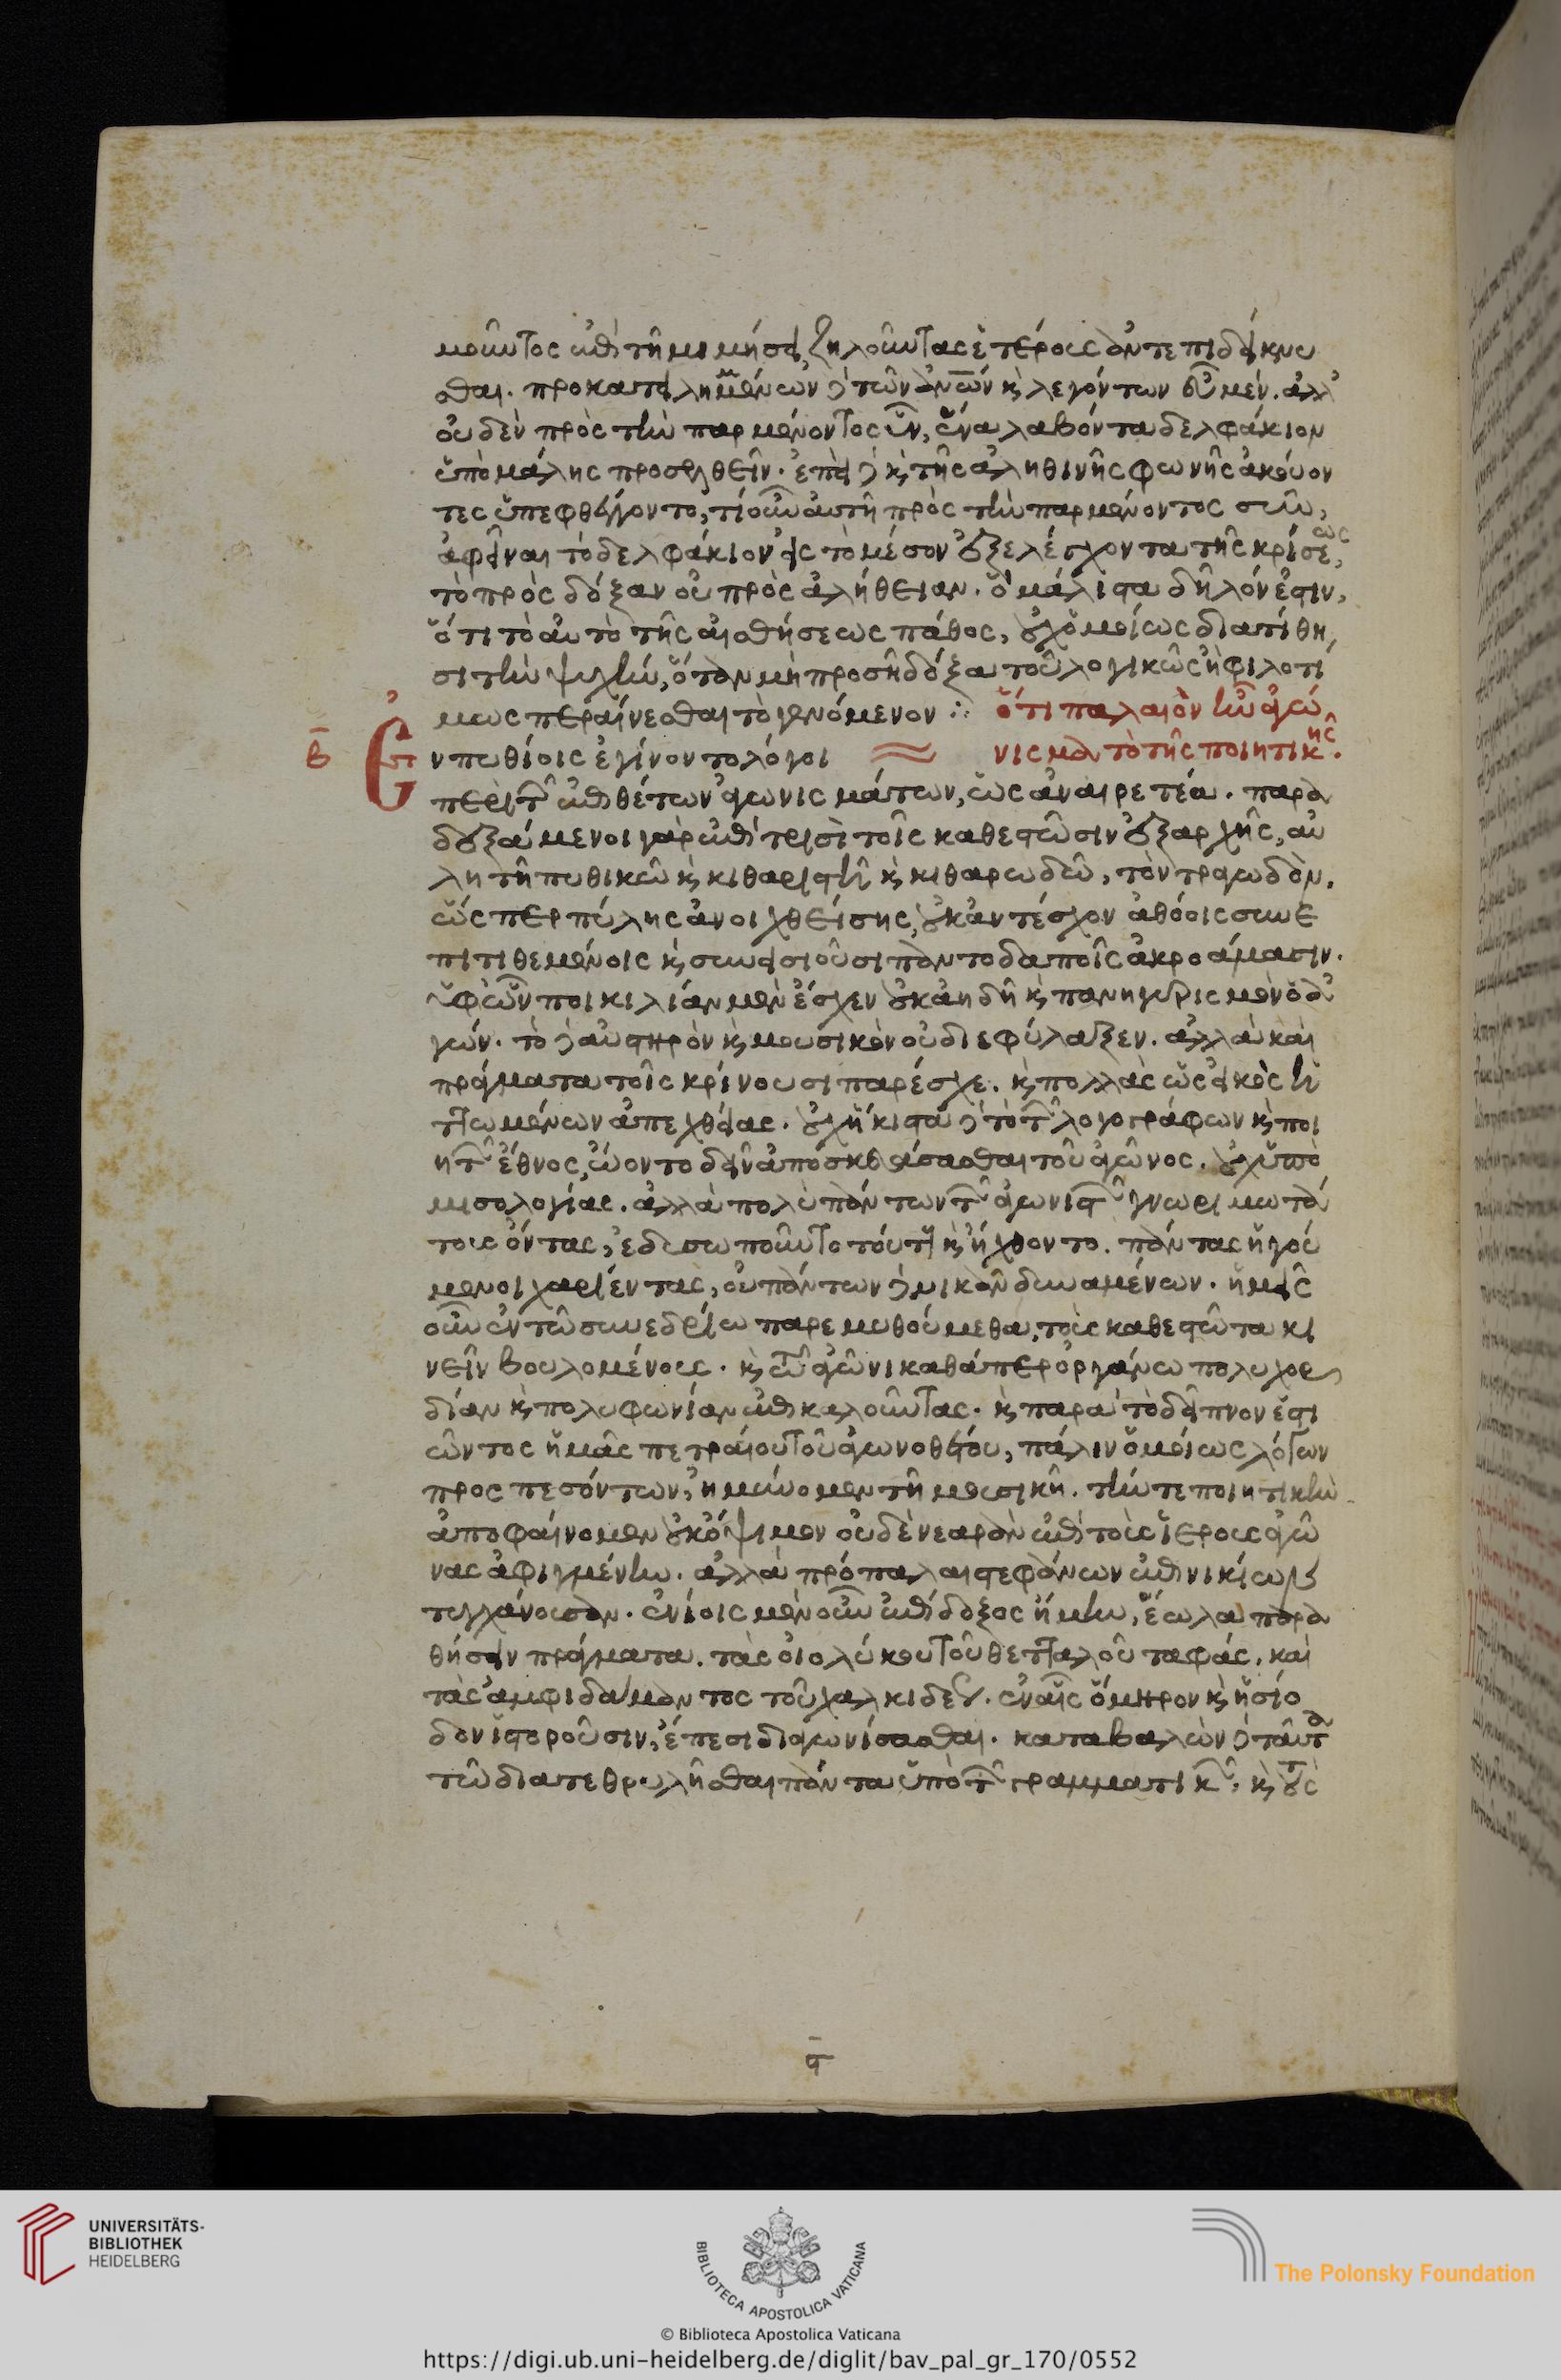 μοῦντος ἐπὶ τῆ μιμήσει, ζηλοῦντας ἑτέρους ἀντεπιδείκνυ
σθαι. προκατειλημμένων δὲ τῶν ἀνων καὶ λεγόντων εὖ μέν. ἀλλ'
οὐδὲν πρὸς τὴν παρμένοντος ὗν, ἕνα λαβόντα δελφάκιον
ὑπὸ μάλης προσελθεῖν. ἐπεὶ δὲ καὶ τῆς ἀληθινῆς φωνῆς ἀκούον
τες ὑπεφθέγγοντο, τί οὖν αὐτη πρὸς τὴν παρμένοντος σῦν,
ἀφεῖναι τὸ δελφάκιον εἰς τὸ μέσον ἐξελέγχοντα τῆς κρίσεως,
τὸ πρὸς δόξαν οὐ πρὸς ἀλήθειαν. ὃ μάλιστα δῆλόν ἐστιν,
ὅτι τὸ αὐτὸ τῆς αἰσθήσεως πάθος, οὐχ ὁμοίως διατίθη
σι τὴν ψυχήν, ὅταν μὴ προσῆ δόξα τοῦ λογικῶς ἢ φιλοτί
μως περαίνεσθαι τὸ γενόμενον ∴ ὅτι παλαιὸν ἦν ἀγώ
β Ἐν πυθίοις ἐγίνοντο λόγοι νισμα τὸ τῆς ποιητικῆς.
περὶ τῶν ἐπιθέτων ἀγωνισμάτων, ὡς ἀναιρετέα. παρα
δεξάμενοι γὰρ ἐπὶ τρισὶ τοῖς καθεστῶσιν ἐξαρχῆς, αὐ
λητῆ πυθικῶ καὶ κιθαριστῆ καὶ κιθαρωδῶ, τὸν τραγωδὸν.
ὥςπερ πύλης ἀνοιχθείσης, οὐκ ἀντέσχον ἀθόοις συνε
πιτιθεμένοις καὶ συνεισιοῦσι παντοδαποῖς ἀκροάμασιν.
ὑφ' ὧν ποικιλίαν μὲν ἔσχεν οὐκ ἀηδῆ καὶ πανηγυρισμὸν ὁ ἀ
γών. τὸ δὲ αὐστηρὸν καὶ μουσικὸν οὐ διεφύλαξεν. ἀλλὰ καὶ
πράγματα τοῖς κρίνουσι παρέσχε. καὶ πολλὰς ὡς εἰκὸς ἡ
ττωμένων ἀπεχθείας. οὐχ ἥκιστα δὲ τὸ τῶν λογογράφων καὶ ποι
ητῶν ἔθνος, ὤοντο δεῖν ἀποσκευάσασθαι τοῦ ἀγῶνος. οὐχ ὑπὸ
μισολογίας. ἀλλὰ πολὺ πάντων τῶν ἀγωνιστῶν γνωριμωτά
τους ὄντας, ἐδυσωποῦντο τούτους καὶ ἤχθοντο. πάντας ἡγού
μενοι χαρίεντας, οὐ πάντων δὲ νικᾶν δυναμένων. ἡμεῖς
οὖν ἐν τῶ συνεδρίω παρεμυθούμεθα, τοὺς καθεστῶτα κι
νεῖν βουλομένους. καὶ τῶ ἀγῶνι καθάπερ ὀργάνω πολυχορ
δίαν καὶ πολυφωνίαν ἐπικαλοῦντας. καὶ παρὰ τὸ δεῖπνον ἑστι
ῶντος ἡμᾶς πετραίου τοῦ ἀγωνοθέτου, πάλιν ὁμοίως λόγων
προςπεσόντων, ἠμύνομεν τῆ μουσικῆ. τήν τε ποιητικὴν
ἀποφαίνομεν οὐκ ὄψιμον οὐδὲ νεαρὰν ἐπὶ τοὺς ἱεροὺς ἀγῶ
νας ἀφιγμένην. ἀλλὰ πρόπαλαι στεφάνων ἐπινικίων
τυγχάνουσαν. ἐνίοις μὲν οὖν ἐπίδοξος ἤμην, ἕωλα παρα
θήσειν πράγματα. τὰς οἰολύκου τοῦ θετταλοῦ ταφάς. καὶ
τὰς ἀμφιδάμαντος τοῦ χαλκιδέως. ἐν αἷς ὅμηρον καὶ ἡσίο
δον ἱστοροῦσιν, ἔπεσι διαγωνίσασθαι. καταβαλὼν δὲ ταῦτα
τῶ διατεθρυλῆσθαι πάντα ὑπὸ τῶν γραμματικῶν, καὶ τοὺς
ϛ
UNIVERSITÄTS-
BIBLIOTHEK
HEIDELBERG
BIBLIOTECA APOSTOLICA VATICANA
The Polonsky Foundation
© Biblioteca Apostolica Vaticana
https://digi.ub.uni-heidelberg.de/diglit/bav_pal_gr_170/0552